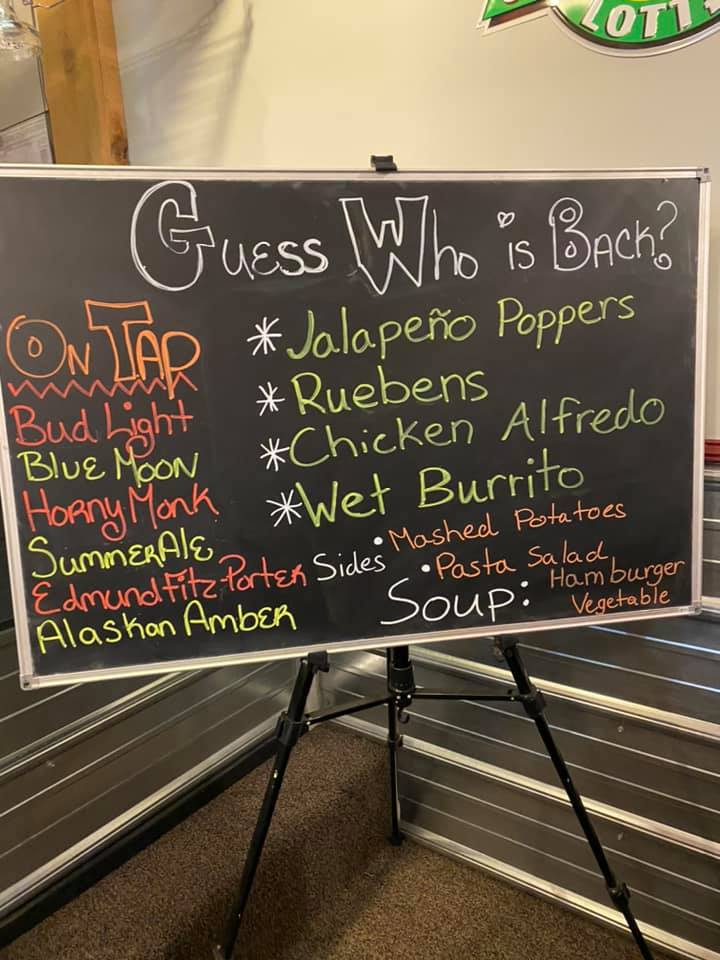 LOTT
Guess Who is Back?
On Tap
Bud Light
Blue Moon
Horny Monk
Summer Ale
Edmund Fitz Porter
Alaskan Amber
* Jalapeño Poppers
* Ruebens
* Chicken Alfredo
* Wet Burrito
Sides • Mashed Potatoes
• Pasta Salad
Soup: Hamburger
Vegetable